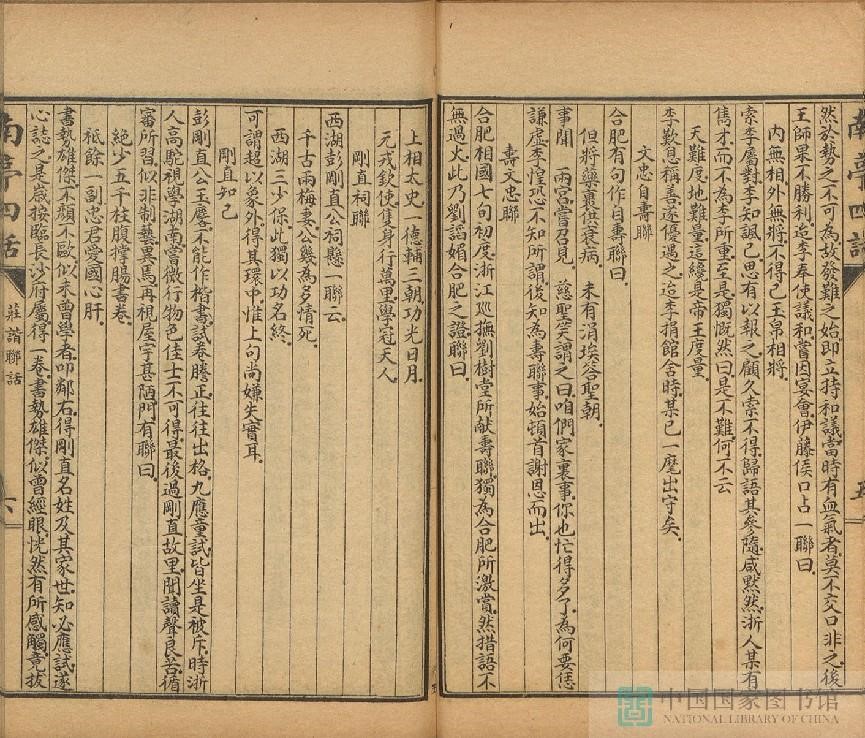 然於勢之不可為故發難之始即立持和議當時有血氣者莫不交口非之後
王師果不勝利迨李奉使議和嘗因宴會伊藤侯口占一聯曰
內無相外無將不得已玉帛相將
索李屬對李知諷己思有以報之顧久索不得歸語其參隨咸默然浙人某有
雋才而不為李所重至是獨慨然曰是不難何不云
天難度地難量這纔是帝王度量
李歎息稱善遂優遇之迨李捐館舍時某已一麾出守矣
文忠自壽聯
合肥有句作自壽聯曰
但將藥裹供衰病 未有涓埃答聖朝
事聞 兩宮嘗召見 慈聖笑謂之曰咱們家裏事你也忙得多了為何要恁
謙虛李惶恐不知所謂後知為壽聯事始頓首謝恩而出
壽文忠聯
合肥相國七旬初度浙江巡撫劉樹堂所献壽聯獨為合肥所激賞然措語不
無過火此乃劉諂媚合肥之證聯曰
上相太史一德輔三朝功光日月
元戎欽使隻身行萬里學冠天人
剛直祠聯
西湖彭剛直公祠懸一聯云
千古兩梅妻公幾為多情死
西湖三少保此獨以功名終
可謂超以象外得其環中惟上句尚嫌失實耳
剛直知己
彭剛直公玉麐不能作楷書試卷謄正往往出格九應童試皆坐是被斥時浙
人高駝視學湖南嘗微行物色佳士不可得最後過剛直故里聞讀聲良苦循
審所習似非制藝異焉再視屋宇甚陋門有聯曰
絕少五千柱腹撐腸書卷
祗餘一副忠君愛國心肝
書勢雄傑不顏不歐似未曾學者叩鄰右得剛直名姓及其家世知必應試遂
心誌之是歲按臨長沙府屬得一卷書勢雄傑似曾經眼恍然有所感觸竟拔
南亭四話
莊諧聯話
六
中国国家图书馆
NATIONAL LIBRARY OF CHINA